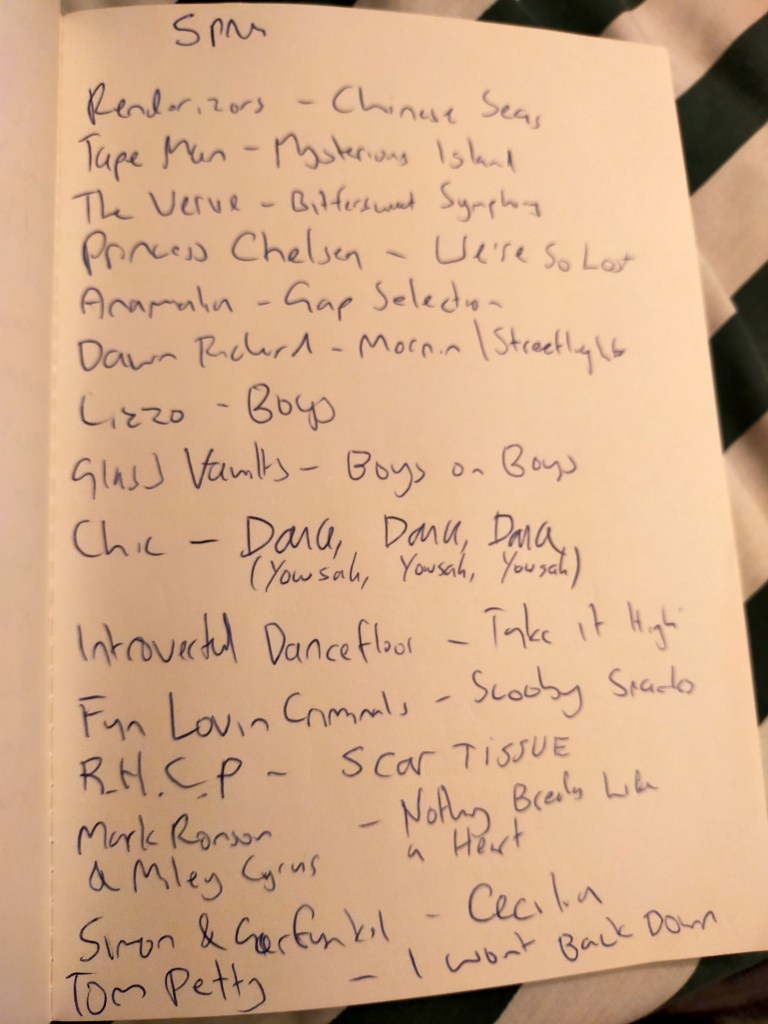 5pm
Rendorizors - Chinese Seas
Tape Man - Mysterious Island
The Verve - Bittersweet Symphony
Princess Chelsea - We're So Lost
- Gap Selection
Dawn Richard - Mornin | Streetlights
Lizzo - Boys
Glass Vaults - Boys on Boys
Chic - Dance, Dance, Dance
(Yowsah, Yowsah, Yowsah)
Introverted Dancefloor - Take it High
Fun Lovin Criminals - Scooby Snacks
R.H.C.P - SCAR TISSUE
Mark Ronson - Nothing Breaks Like
& Miley Cyrus a Heart
Simon & Garfunkel - Cecilia
Tom Petty - I wont Back Down